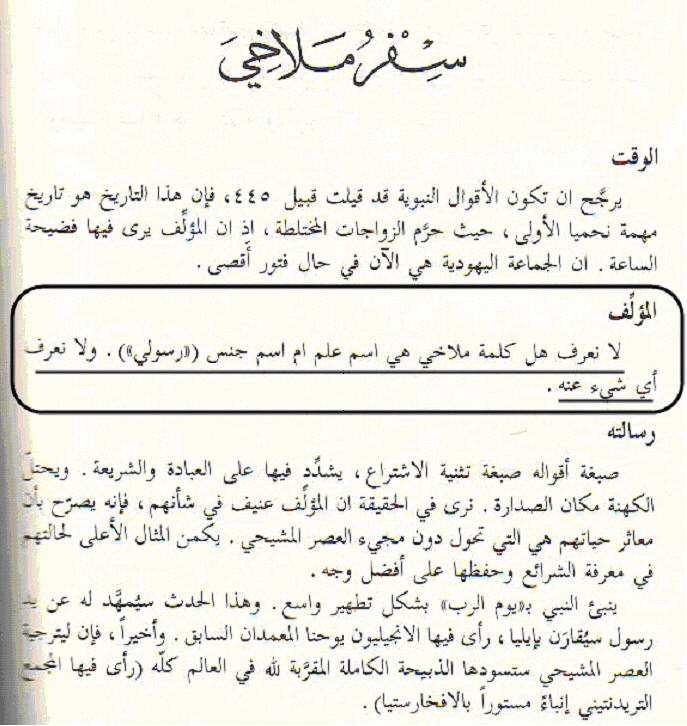 سِفْرُ مَلَاخِيَ
الوقت
يرجَّح ان تكون الأقوال النبوية قد قيلت قبيل ٤٤٥، فإن هذا التاريخ هو تاريخ
مهمة نحميا الأولى، حيث حرَّم الزواجات المختلطة، اذ ان المؤلِّف يرى فيها فضيحة
الساعة. ان الجماعة اليهودية هي الآن في حال فتور أقصى.
المؤلِّف
لا نعرف هل كلمة ملاخي هي اسم علم ام اسم جنس («رسولي»). ولا نعرف
أي شيء عنه.
رسالته
صبغة أقواله صبغة تثنية الاشتراع، يشدِّد فيها على العبادة والشريعة. ويحتل
الكهنة مكان الصدارة. نرى في الحقيقة ان المؤلِّف عنيف في شأنهم، فإنه يصرّح بأن
معاثر حياتهم هي التي تحول دون مجيء العصر المشيحي. يكمن المثال الأعلى لحالتهم
في معرفة الشرائع وحفظها على أفضل وجه.
ينبئ النبي بـ«يوم الرب» بشكل تطهير واسع. وهذا الحدث سيُمهَّد له عن يد
رسول سيُقارَن بإيليا، رأى فيها الانجيليون يوحنا المعمدان السابق. وأخيراً، فإن ليترجية
العصر المشيحي ستسودها الذبيحة الكاملة المقرَّبة لله في العالم كلّه (رأى فيها المجمع
التريدنتيني إنباءً مستوراً بالافخارستيا).